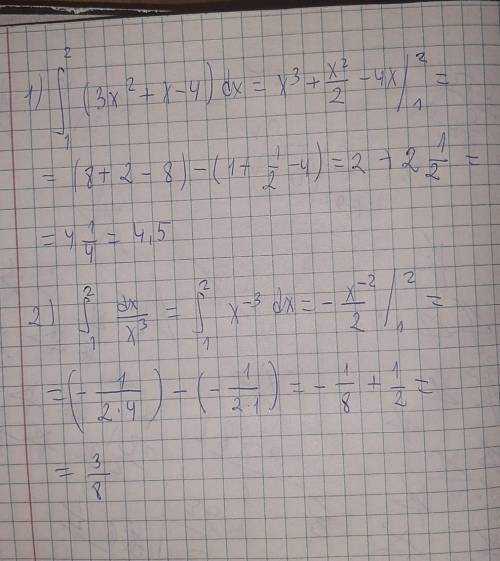 1) ∫₁² (3x² + x - 4) dx = x³ + x²/2 - 4x |₁² =
= (8 + 2 - 8) - (1 + 1/2 - 4) = 2 + 2 1/2 =
= 4 1/4 = 4,5
2) ∫₁² dx/x³ = ∫₁² x⁻³ dx = - x⁻²/2 |₁² =
= (- 1/(2·4)) - (- 1/(2·1)) = - 1/8 + 1/2 =
= 3/8